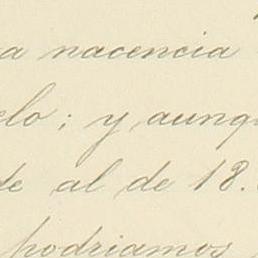 a nacencia
elo; y aunqu
de al de 18.
podriamos